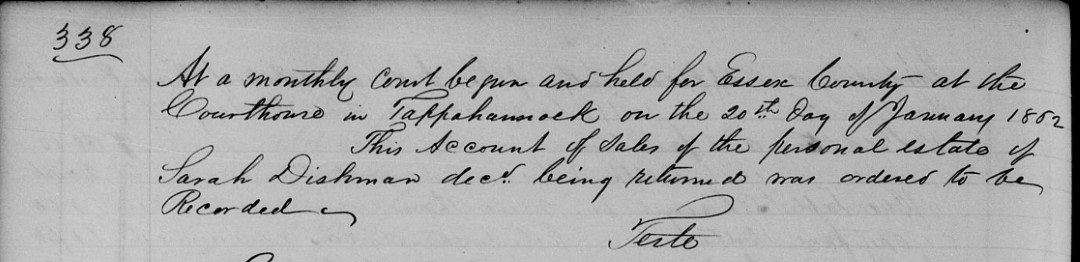 338
At a monthly Court begun and held for Essex County at the
Courthouse in Tappahannock on the 20th Day of January 1862
This Account of Sales of the personal estate of
Sarah Dishman decd. being returned was ordered to be
Recorded
Teste